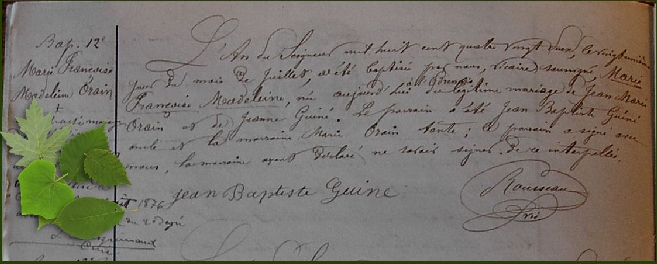 Bap. 12e
Marie Françoise
Madeleine Orain
+
L'An du Seigneur mil huit cent quatre vingt deux, le vingt unième
jour du mois de Juillet, a été baptisée par nous, vicaire soussigné, Marie
Françoise Madeleine, née aujourd'hui du légitime mariage de Jean Marie
Orain et de Jeanne Guine. Le parrain a été Jean Baptiste Guiné
oncle et la marraine Marie Orain tante; le parrain a signé avec
nous, la marraine ayant déclaré ne savoir signer de ce interpellée.
Jean Baptiste Guiné
Rousseau
1876